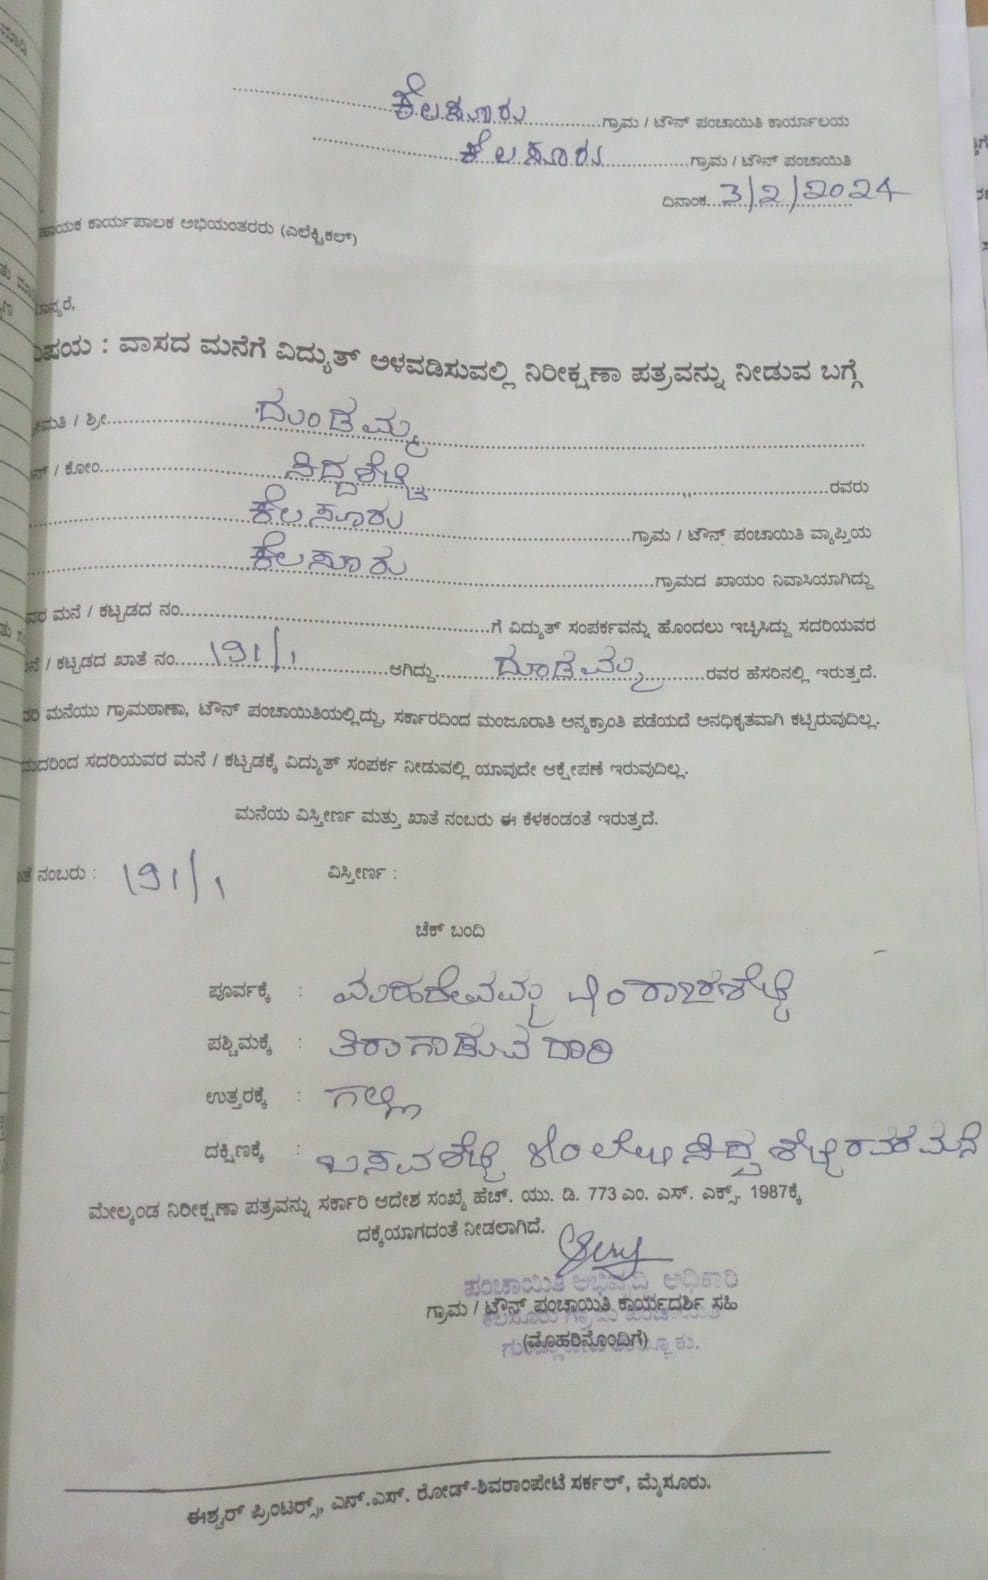 ಕೆಲಸೂರು ಗ್ರಾಮ / ಟೌನ್ ಪಂಚಾಯಿತಿ ಕಾರ್ಯಾಲಯ
ಕೆಲಸೂರು ಗ್ರಾಮ / ಟೌನ್ ಪಂಚಾಯಿತಿ
ದಿನಾಂಕ 3/2/2024
ಕಾರ್ಯಪಾಲಕ ಅಭಿಯಂತರರು (ಎಲೆಕ್ಟ್ರಿಕಲ್)
: ವಾಸದ ಮನೆಗೆ ವಿದ್ಯುತ್ ಅಳವಡಿಸುವಲ್ಲಿ ನಿರೀಕ್ಷಣಾ ಪತ್ರವನ್ನು ನೀಡುವ ಬಗ್ಗೆ
/ ಶ್ರೀ ದುಂಡಮ್ಮ
/ ಕೋಂ ಸಿದ್ದಶೆಟ್ಟಿ ರವರು
ಕೆಲಸೂರು ಗ್ರಾಮ / ಟೌನ್ ಪಂಚಾಯಿತಿ ವ್ಯಾಪ್ತಿಯ
ಕೆಲಸೂರು ಗ್ರಾಮದ ಖಾಯಂ ನಿವಾಸಿಯಾಗಿದ್ದು
ಮನೆ / ಕಟ್ಟಡದ ನಂ. ಗೆ ವಿದ್ಯುತ್ ಸಂಪರ್ಕವನ್ನು ಹೊಂದಲು ಇಚ್ಛಿಸಿದ್ದು ಸದರಿಯವರ
/ ಕಟ್ಟಡದ ಖಾತೆ ನಂ. 191/1 ಆಗಿದ್ದು ದುಂಡಮ್ಮ ರವರ ಹೆಸರಿನಲ್ಲಿ ಇರುತ್ತದೆ.
ಮನೆಯು ಗ್ರಾಮಠಾಣಾ, ಟೌನ್ ಪಂಚಾಯಿತಿಯಲ್ಲಿದ್ದು, ಸರ್ಕಾರದಿಂದ ಮಂಜೂರಾತಿ ಅನ್ಯಕ್ರಾಂತಿ ಪಡೆಯದೆ ಅನಧಿಕೃತವಾಗಿ ಕಟ್ಟಿರುವುದಿಲ್ಲ.
ಸದರಿಯವರ ಮನೆ / ಕಟ್ಟಡಕ್ಕೆ ವಿದ್ಯುತ್ ಸಂಪರ್ಕ ನೀಡುವಲ್ಲಿ ಯಾವುದೇ ಆಕ್ಷೇಪಣೆ ಇರುವುದಿಲ್ಲ.
ಮನೆಯ ವಿಸ್ತೀರ್ಣ ಮತ್ತು ಖಾತೆ ನಂಬರು ಈ ಕೆಳಕಂಡಂತೆ ಇರುತ್ತದೆ.
ನಂಬರು : 191/1 ವಿಸ್ತೀರ್ಣ :
ಚೆಕ್ ಬಂದಿ
ಪೂರ್ವಕ್ಕೆ :
ಪಶ್ಚಿಮಕ್ಕೆ : ತಿರುಗಾಡುವ ದಾರಿ
ಉತ್ತರಕ್ಕೆ : ಗಲ್ಲಿ
ದಕ್ಷಿಣಕ್ಕೆ : ಬಸವಶೆಟ್ಟಿ ಸಿದ್ದಶೆಟ್ಟಿ ರವರ ಮನೆ
ಮೇಲ್ಕಂಡ ನಿರೀಕ್ಷಣಾ ಪತ್ರವನ್ನು ಸರ್ಕಾರಿ ಆದೇಶ ಸಂಖ್ಯೆ ಹೆಚ್. ಯು. ಡಿ. 773 ಎಂ. ಎಸ್. ಎಕ್ಸ್. 1987ಕ್ಕೆ
ದಕ್ಕೆಯಾಗದಂತೆ ನೀಡಲಾಗಿದೆ.
ಪಂಚಾಯಿತಿ ಅಭಿವೃದ್ಧಿ ಅಧಿಕಾರಿ
ಗ್ರಾಮ / ಟೌನ್ ಪಂಚಾಯಿತಿ ಕಾರ್ಯದರ್ಶಿ ಸಹಿ
(ಮೊಹರಿನೊಂದಿಗೆ)
ಈಶ್ವರ್ ಪ್ರಿಂಟರ್ಸ್, ಎನ್.ಎಸ್. ರೋಡ್-ಶಿವರಾಂಪೇಟೆ ಸರ್ಕಲ್, ಮೈಸೂರು.